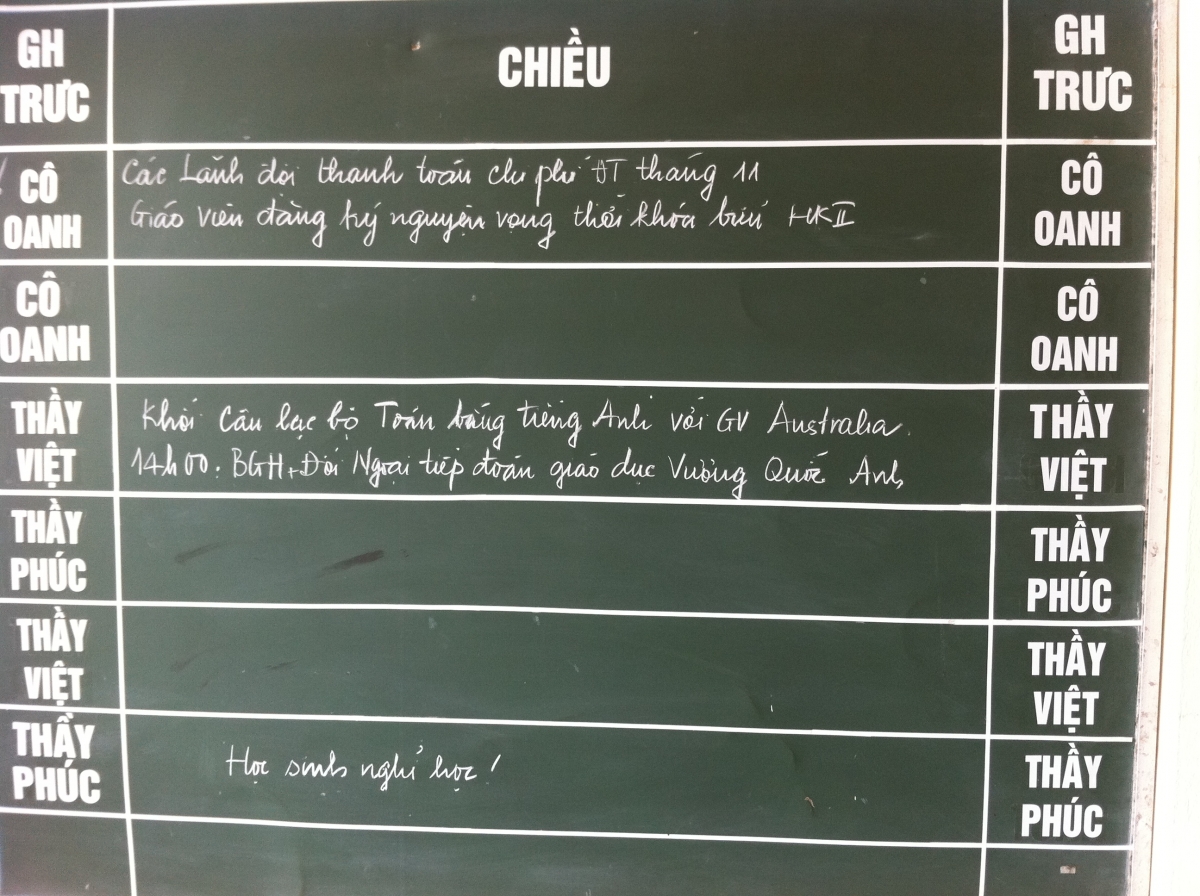 GH TRƯC
CHIỀU
GH TRƯC
CÔ OANH
Các Lãnh đội thanh toán chi phí ĐT tháng 11
Giáo viên đăng ký nguyện vọng thời khóa biểu HKII
CÔ OANH
CÔ OANH
CÔ OANH
THẦY VIỆT
Khối Câu lạc bộ Toán bằng tiếng Anh với GV Australia.
14h00: BGH+Đối Ngoại tiếp đoàn giáo dục Vương Quốc Anh
THẦY VIỆT
THẦY PHÚC
THẦY PHÚC
THẦY VIỆT
THẦY VIỆT
THẦY PHÚC
Học sinh nghỉ học!
THẦY PHÚC